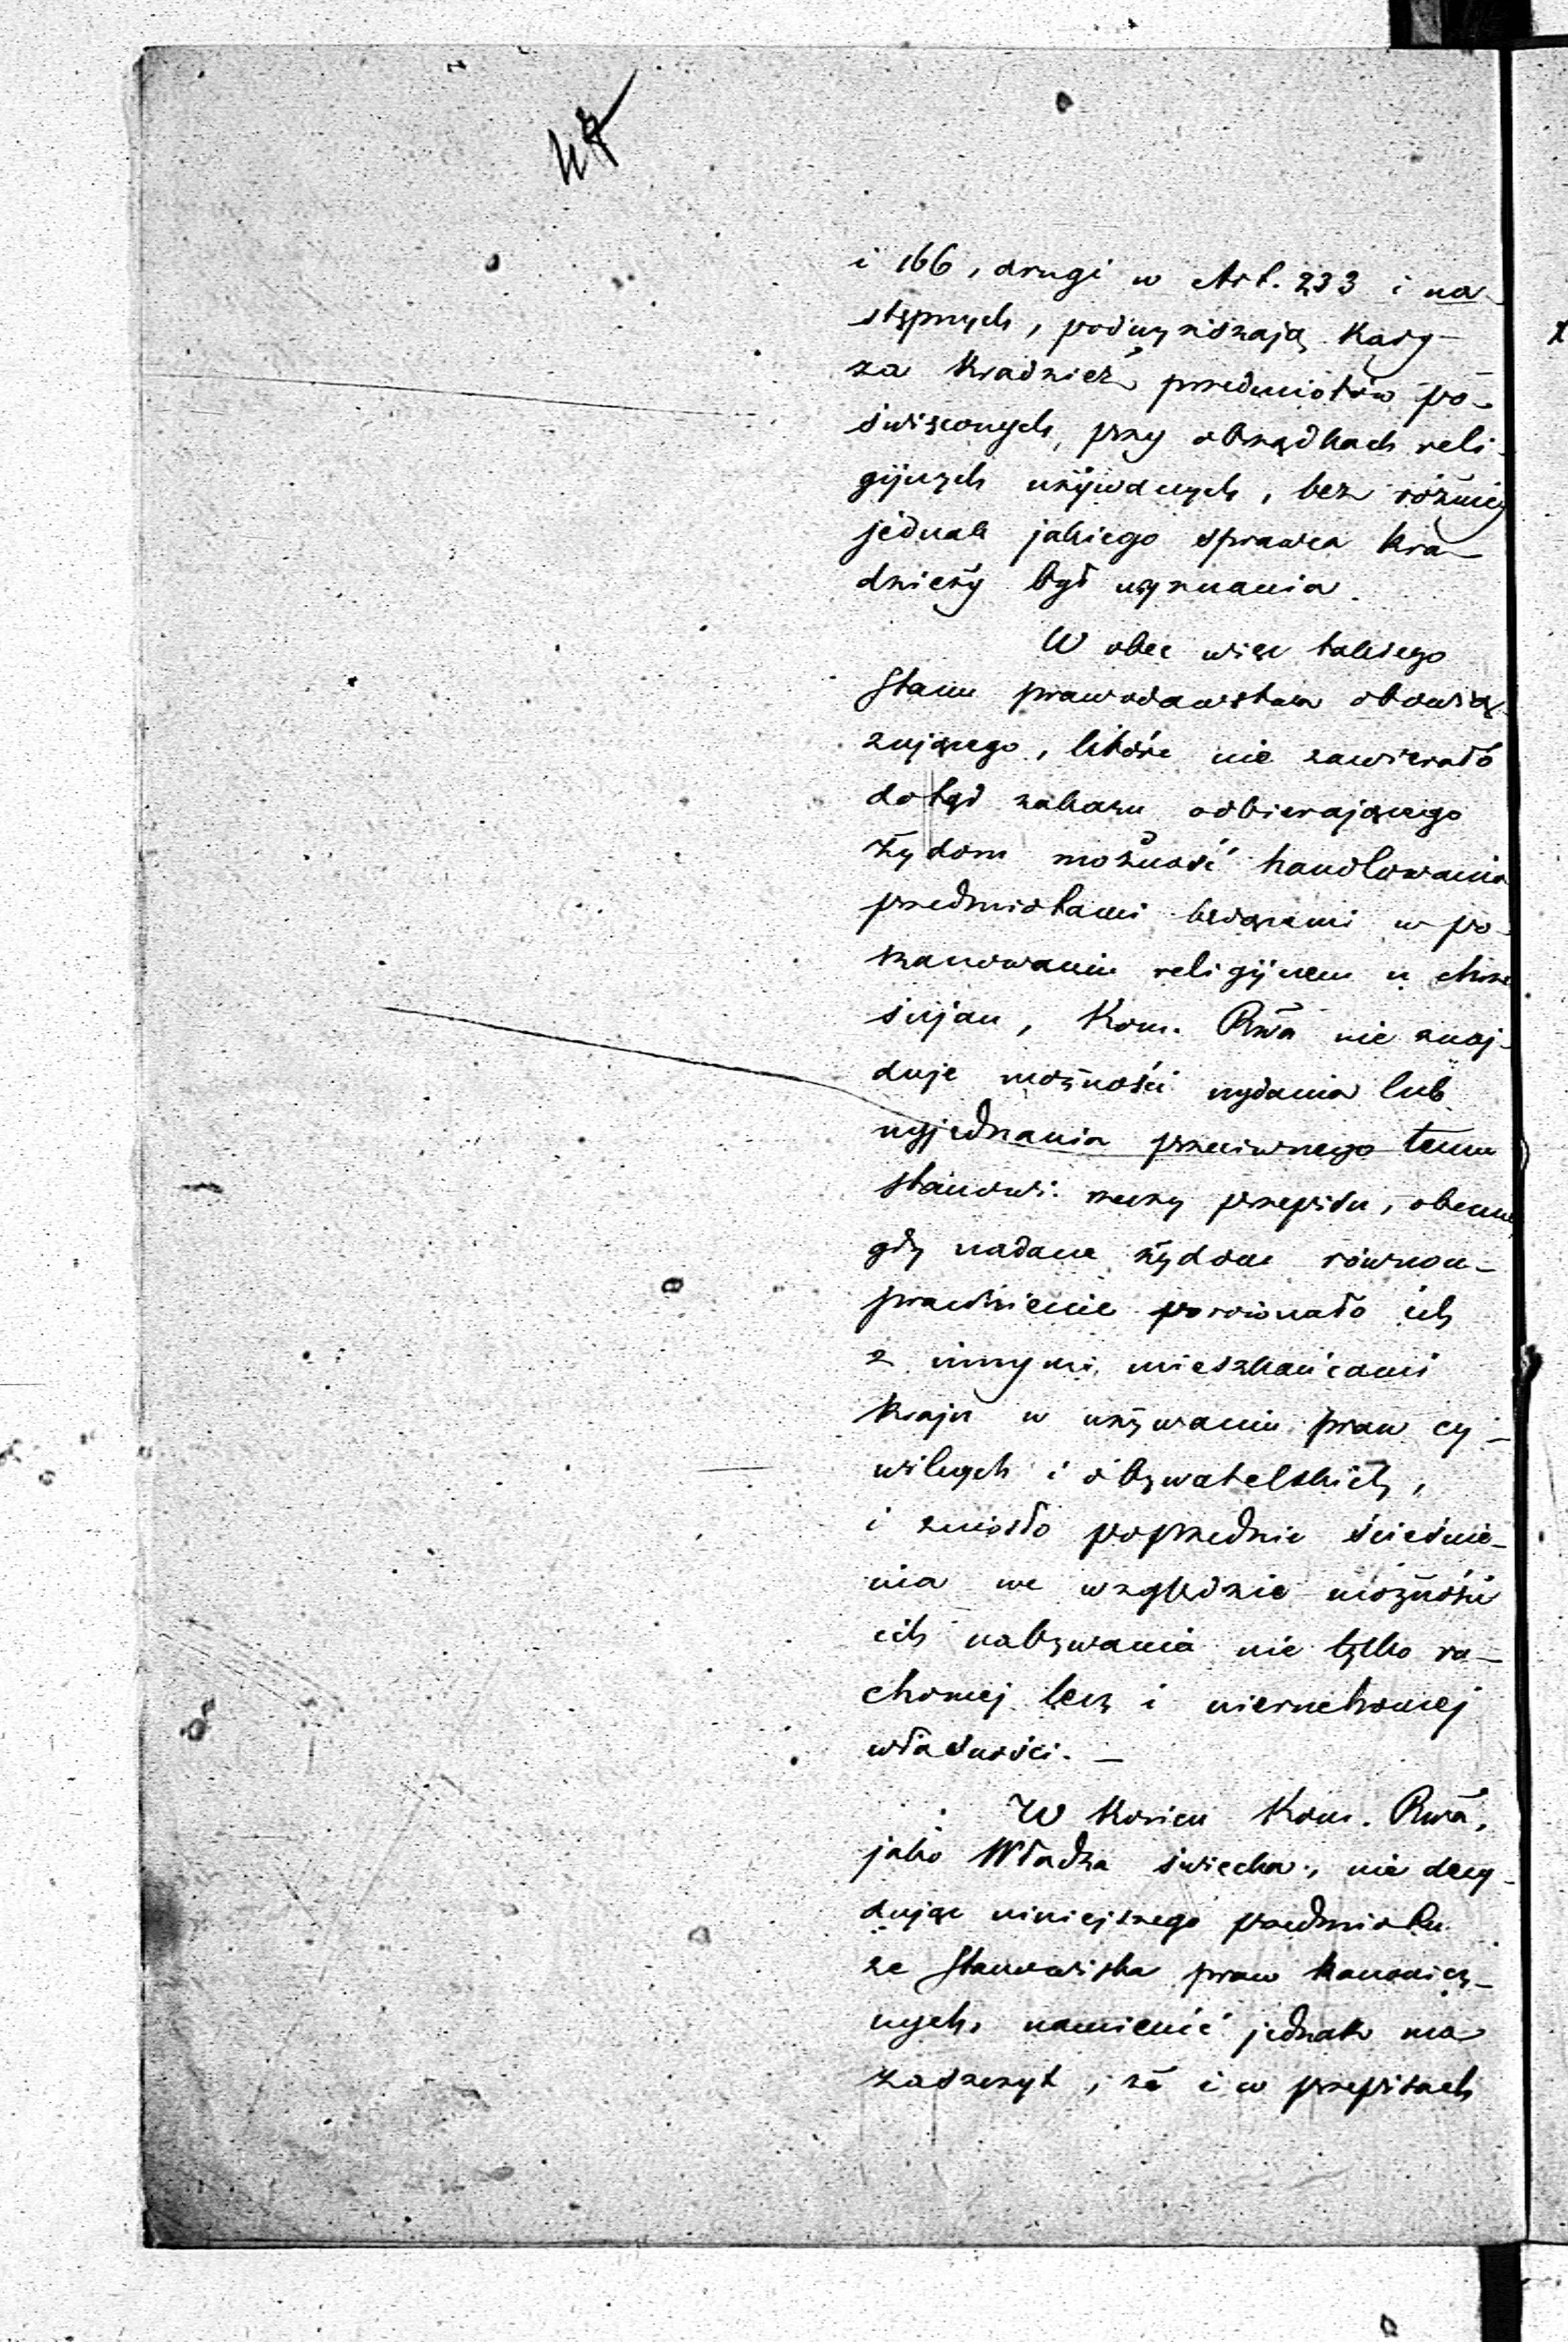 i 166, drugi w Art. 233 i na-
stępnych, podwyższają karę
za kradzież przedmiotów po-
święconych, przy obrządkach reli-
gijnych używanych, bez różnicy
jednak jakiego sprawca kra-
dzieży był wyznania.
W obec więc takiego
stanu prawodawstwa obowią-
zującego, które nie zawierało
dotąd zakazu odbierającego
Żydom możność handlowania
przedmiotami będącemi w po-
szanowaniu religijnem u chrze
ścijan, Kom. Rwa nie znaj-
duje możności wydania lub
wyjednania przeciwnego temu
stanowi rzeczy przepisu, obecnie
gdy nadane żydom równou-
prawnienie porównało ich
z innymi mieszkańcami
kraju w używaniu praw cy-
wilnych i obywatelskich,
i zniosło poprzednie ścieśnie-
nia we względzie możności
ich nabywania nie tylko ru-
chomej lecz i nieruchomej
własności. —
W końcu Kom. Rwa,
jako Władza świecka, nie decy-
dując niniejszego przedmiotu
ze stanowiska praw kanonicz-
nych, namienić jednak ma
zaszczyt, że i w przepisach